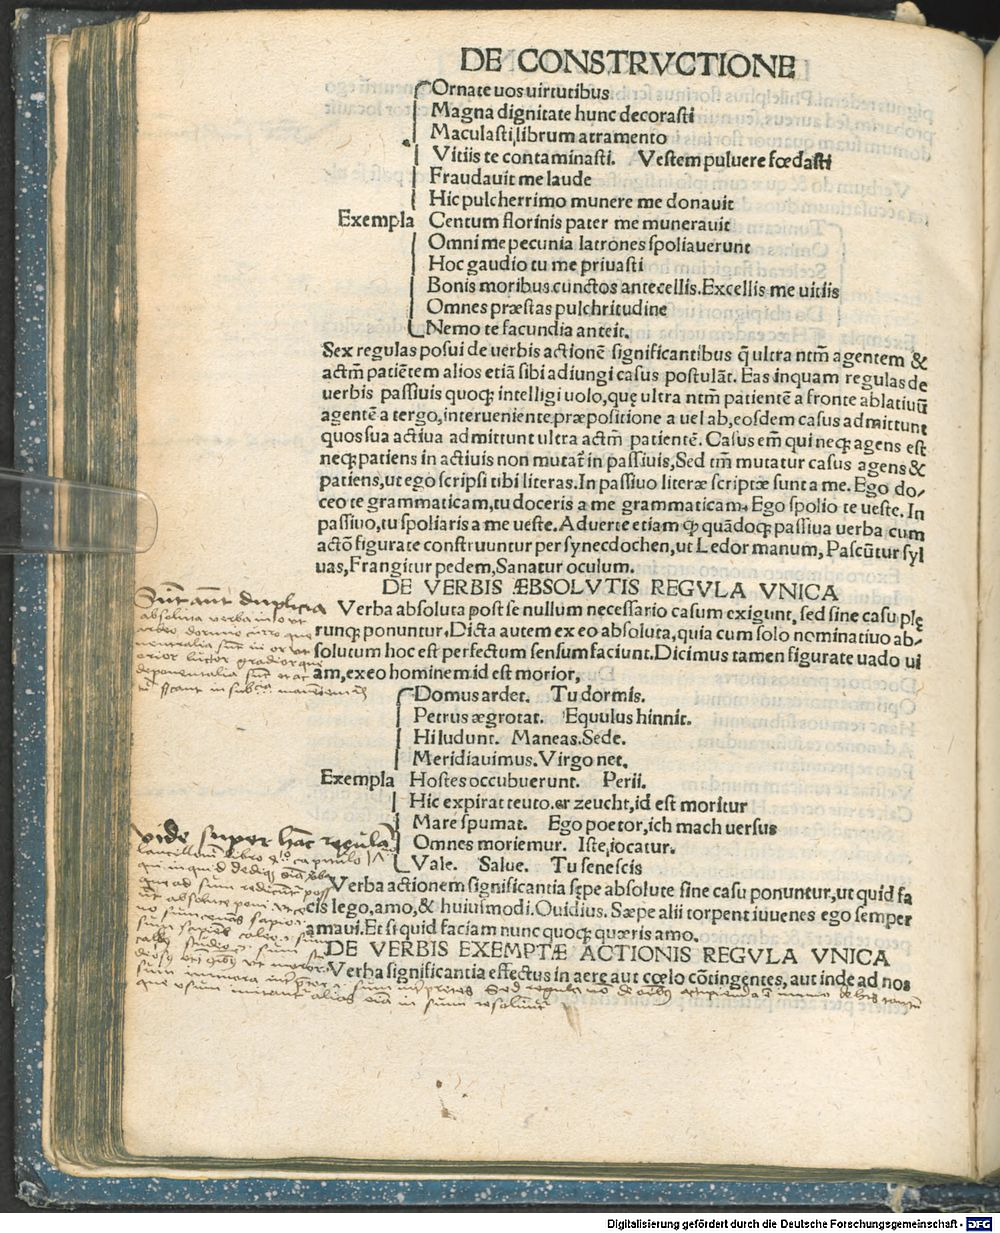 DE CONSTRVCTIONE
Ornate uos uirtutibus
Magna dignitate hunc decorasti
Maculasti librum atramento
Vitiis te contaminasti. Vestem puluere fœdasti
Fraudauit me laude
Hic pulcherrimo munere me donauit
Exempla Centum florinis pater me munerauit
Omni me pecunia latrones spoliauerunt
Hoc gaudio tu me priuasti
Bonis moribus cunctos antecellis. Excellis me uitiis
Omnes præstas pulchritudine
Nemo te facundia anteit.
Sex regulas posui de uerbis actionē significantibus q̃ ultra ntm̃ agentem &
actm̃ patiētem alios etiā sibi adiungi casus postulāt. Eas inquam regulas de
uerbis passiuis quoqꝫ intelligi uolo, quę ultra ntm̃ patientē a fronte ablatiuū
agentē a tergo, interueniente præpositione a uel ab, eosdem casus admittunt
quos sua actiua admittunt ultra actm̃ patientē. Casus em̃ qui neqꝫ agens est
neqꝫ patiens in actiuis non mutat̃ in passiuis, Sed tm̃ mutatur casus agens &
patiens, ut ego scripsi tibi literas. In passiuo literæ scriptæ sunt a me. Ego do/
ceo te grammaticam, tu doceris a me grammaticam. Ego spolio te ueste. In
passiuo, tu spoliaris a me ueste. Aduerte etiam ꝙ quādoqꝫ passiua uerba cum
actō figurate construuntur per synecdochen, ut Ledor manum, Pascūtur syl
uas, Frangitur pedem, Sanatur oculum.
DE VERBIS ÆBSOLVTIS REGVLA VNICA
Verba absoluta post se nullum necessario casum exigunt, sed sine casu plę
runqꝫ ponuntur. Dicta autem ex eo absoluta, quia cum solo nominatiuo ab/
solutum hoc est perfectum sensum faciunt. Dicimus tamen figurate uado ui
am, ex eo hominem id est morior,
Sunt aut̃ duplicia
absoluta verba
Domus ardet. Tu dormis.
Petrus ægrotat. Equulus hinnit.
Hi ludunt. Maneas. Sede.
Meridiauimus. Virgo net.
Exempla Hostes occubuerunt. Perii.
Hic expirat teuto. er zeucht, id est moritur
Mare spumat. Ego poetor, ich mach uersus
Omnes moriemur. Iste iocatur.
Vale. Salue. Tu senescis
vide super hac regulā
Verba actionem significantia sępe absolute sine casu ponuntur, ut quid fa
cis lego, amo, & huiusmodi. Ouidius. Sæpe alii torpent iuuenes ego semper
amaui. Et si quid faciam nunc quoqꝫ quæris amo.
DE VERBIS EXEMPTÆ ACTIONIS REGVLA VNICA
Verba significantia effectus in aere aut cœlo cōtingentes, aut inde ad nos
Digitalisierung gefördert durch die Deutsche Forschungsgemeinschaft - DFG